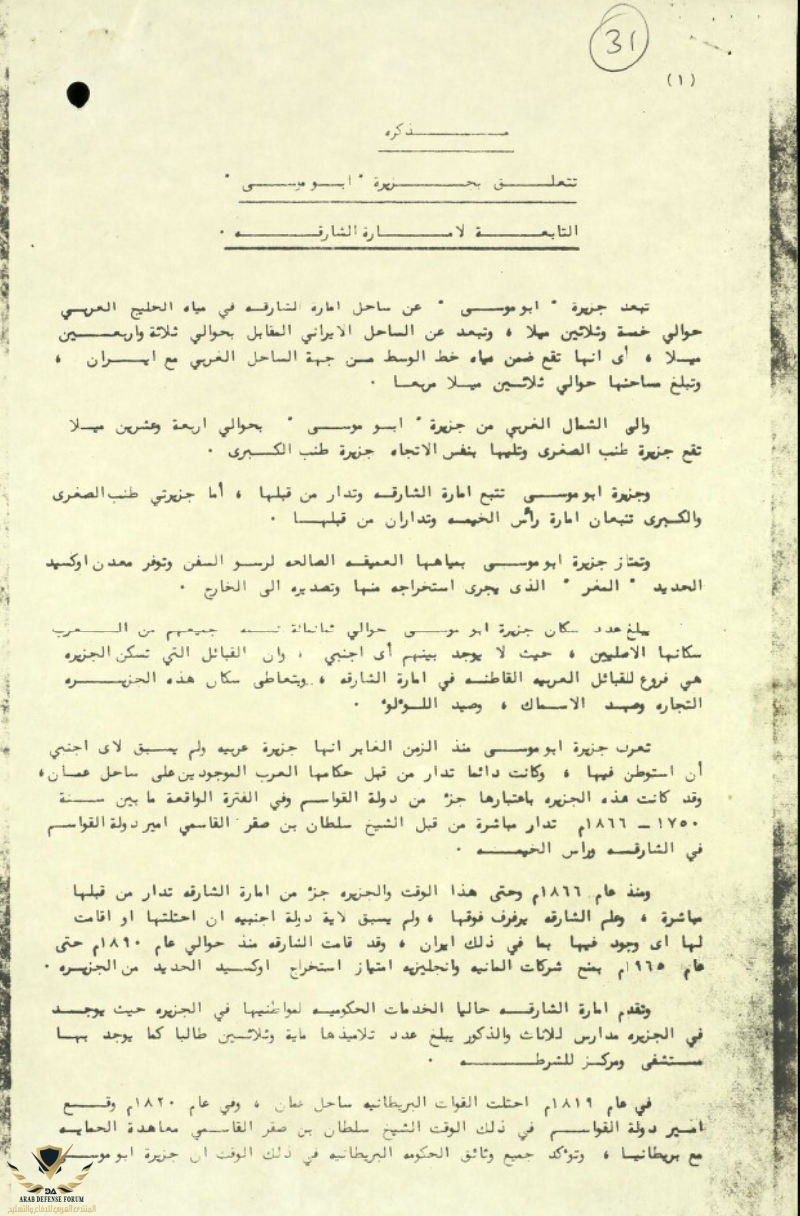 31
(١)
مذكره
تتعلق بجزيرة " ابو موسى "
التابعة لامارة الشارقه .
تبعد جزيرة " ابو موسى " عن ساحل امارة الشارقه في مياه الخليج العربي
حوالي خمسة وثلاثين ميلا ، وتبعد عن الساحل الايراني المقابل بحوالي ثلاثة واربعين
ميلا ، أى انها تقع ضمن مياه خط الوسط من جهة الساحل العربي مع ايران ،
وتبلغ مساحتها حوالي ثلاثين ميلا مربعا .
والى الشمال الغربي من جزيرة " ابو موسى " بحوالي اربعة وعشرين ميلا
تقع جزيرة طنب الصغرى وتليها بنفس الاتجاه جزيرة طنب الكبرى .
وجزيرة ابو موسى تتبع امارة الشارقه وتدار من قبلها ، أما جزيرتي طنب الصغرى
والكبرى تتبعان امارة رأس الخيمه وتداران من قبلها .
وتمتاز جزيرة ابو موسى بمياهها العميقه الصالحه لرسو السفن وتوفر معدن اوكسيد
الحديد " المغر " الذى يجرى استخراجه منها وتصديره الى الخارج .
يبلغ عدد سكان جزيرة ابو موسى حوالي ثمانمائة نسمه جميعهم من العرب
سكانها الاصليين ، حيث لا يوجد بينهم أى اجنبي ، وان القبائل التي تسكن الجزيره
هي فروع للقبائل العربيه القاطنه في امارة الشارقه ، ويتعاطى سكان هذه الجزيره
التجاره وصيد الاسماك ، وصيد اللؤلؤ .
تعرب جزيرة ابو موسى منذ الزمن الغابر انها جزيرة عربيه ولم يسبق لاى اجنبي
أن استوطن فيها ، وكانت دائما تدار من قبل حكامها العرب الموجودين على ساحل عمان،
وقد كانت هذه الجزيره باعتبارها جزء من دولة القواسم وفي الفترة الواقعة ما بين سنة
١٧٥٠ – ١٨٦٦م تدار مباشرة من قبل الشيخ سلطان بن صقر القاسمي امير دولة القواسم
في الشارقه وراس الخيمه .
ومنذ عام ١٨٦٦م وحتى هذا الوقت والجزيره جزء من امارة الشارقه تدار من قبلها
مباشرة ، وعلم الشارقه يرفرف فوقها ، ولم يسبق لاية دولة اجنبيه ان احتلتها او اقامت
لها اى وجود فيها بما في ذلك ايران ، وقد قامت الشارقه منذ حوالي عام ١٨٩٠م حتى
عام ١٩٦٥م بمنح شركات المانيه وانجليزيه امتياز استخراج اوكسيد الحديد من الجزيره .
وتقدم امارة الشارقه حاليا الخدمات الحكوميه لمواطنيها في الجزيره حيث يوجد
في الجزيره مدارس للاناث والذكور يبلغ عدد تلاميذها ماية وثلاثين طالبا كما يوجد بها
مستشفى ومركز للشرطه .
في عام ١٨١٩م احتلت القوات البريطانيه ساحل عمان ، وفي عام ١٨٢٠م وقع
امير دولة القواسم في ذلك الوقت الشيخ سلطان بن صقر القاسمي معاهدة الحمايه
مع بريطانيا ، وتؤكد جميع وثائق الحكومه البريطانيه في ذلك الوقت ان جزيرة ابو موسى
DA
ARAB DEFENSE FORUM
المنتدى العربي للدفاع والتسليح